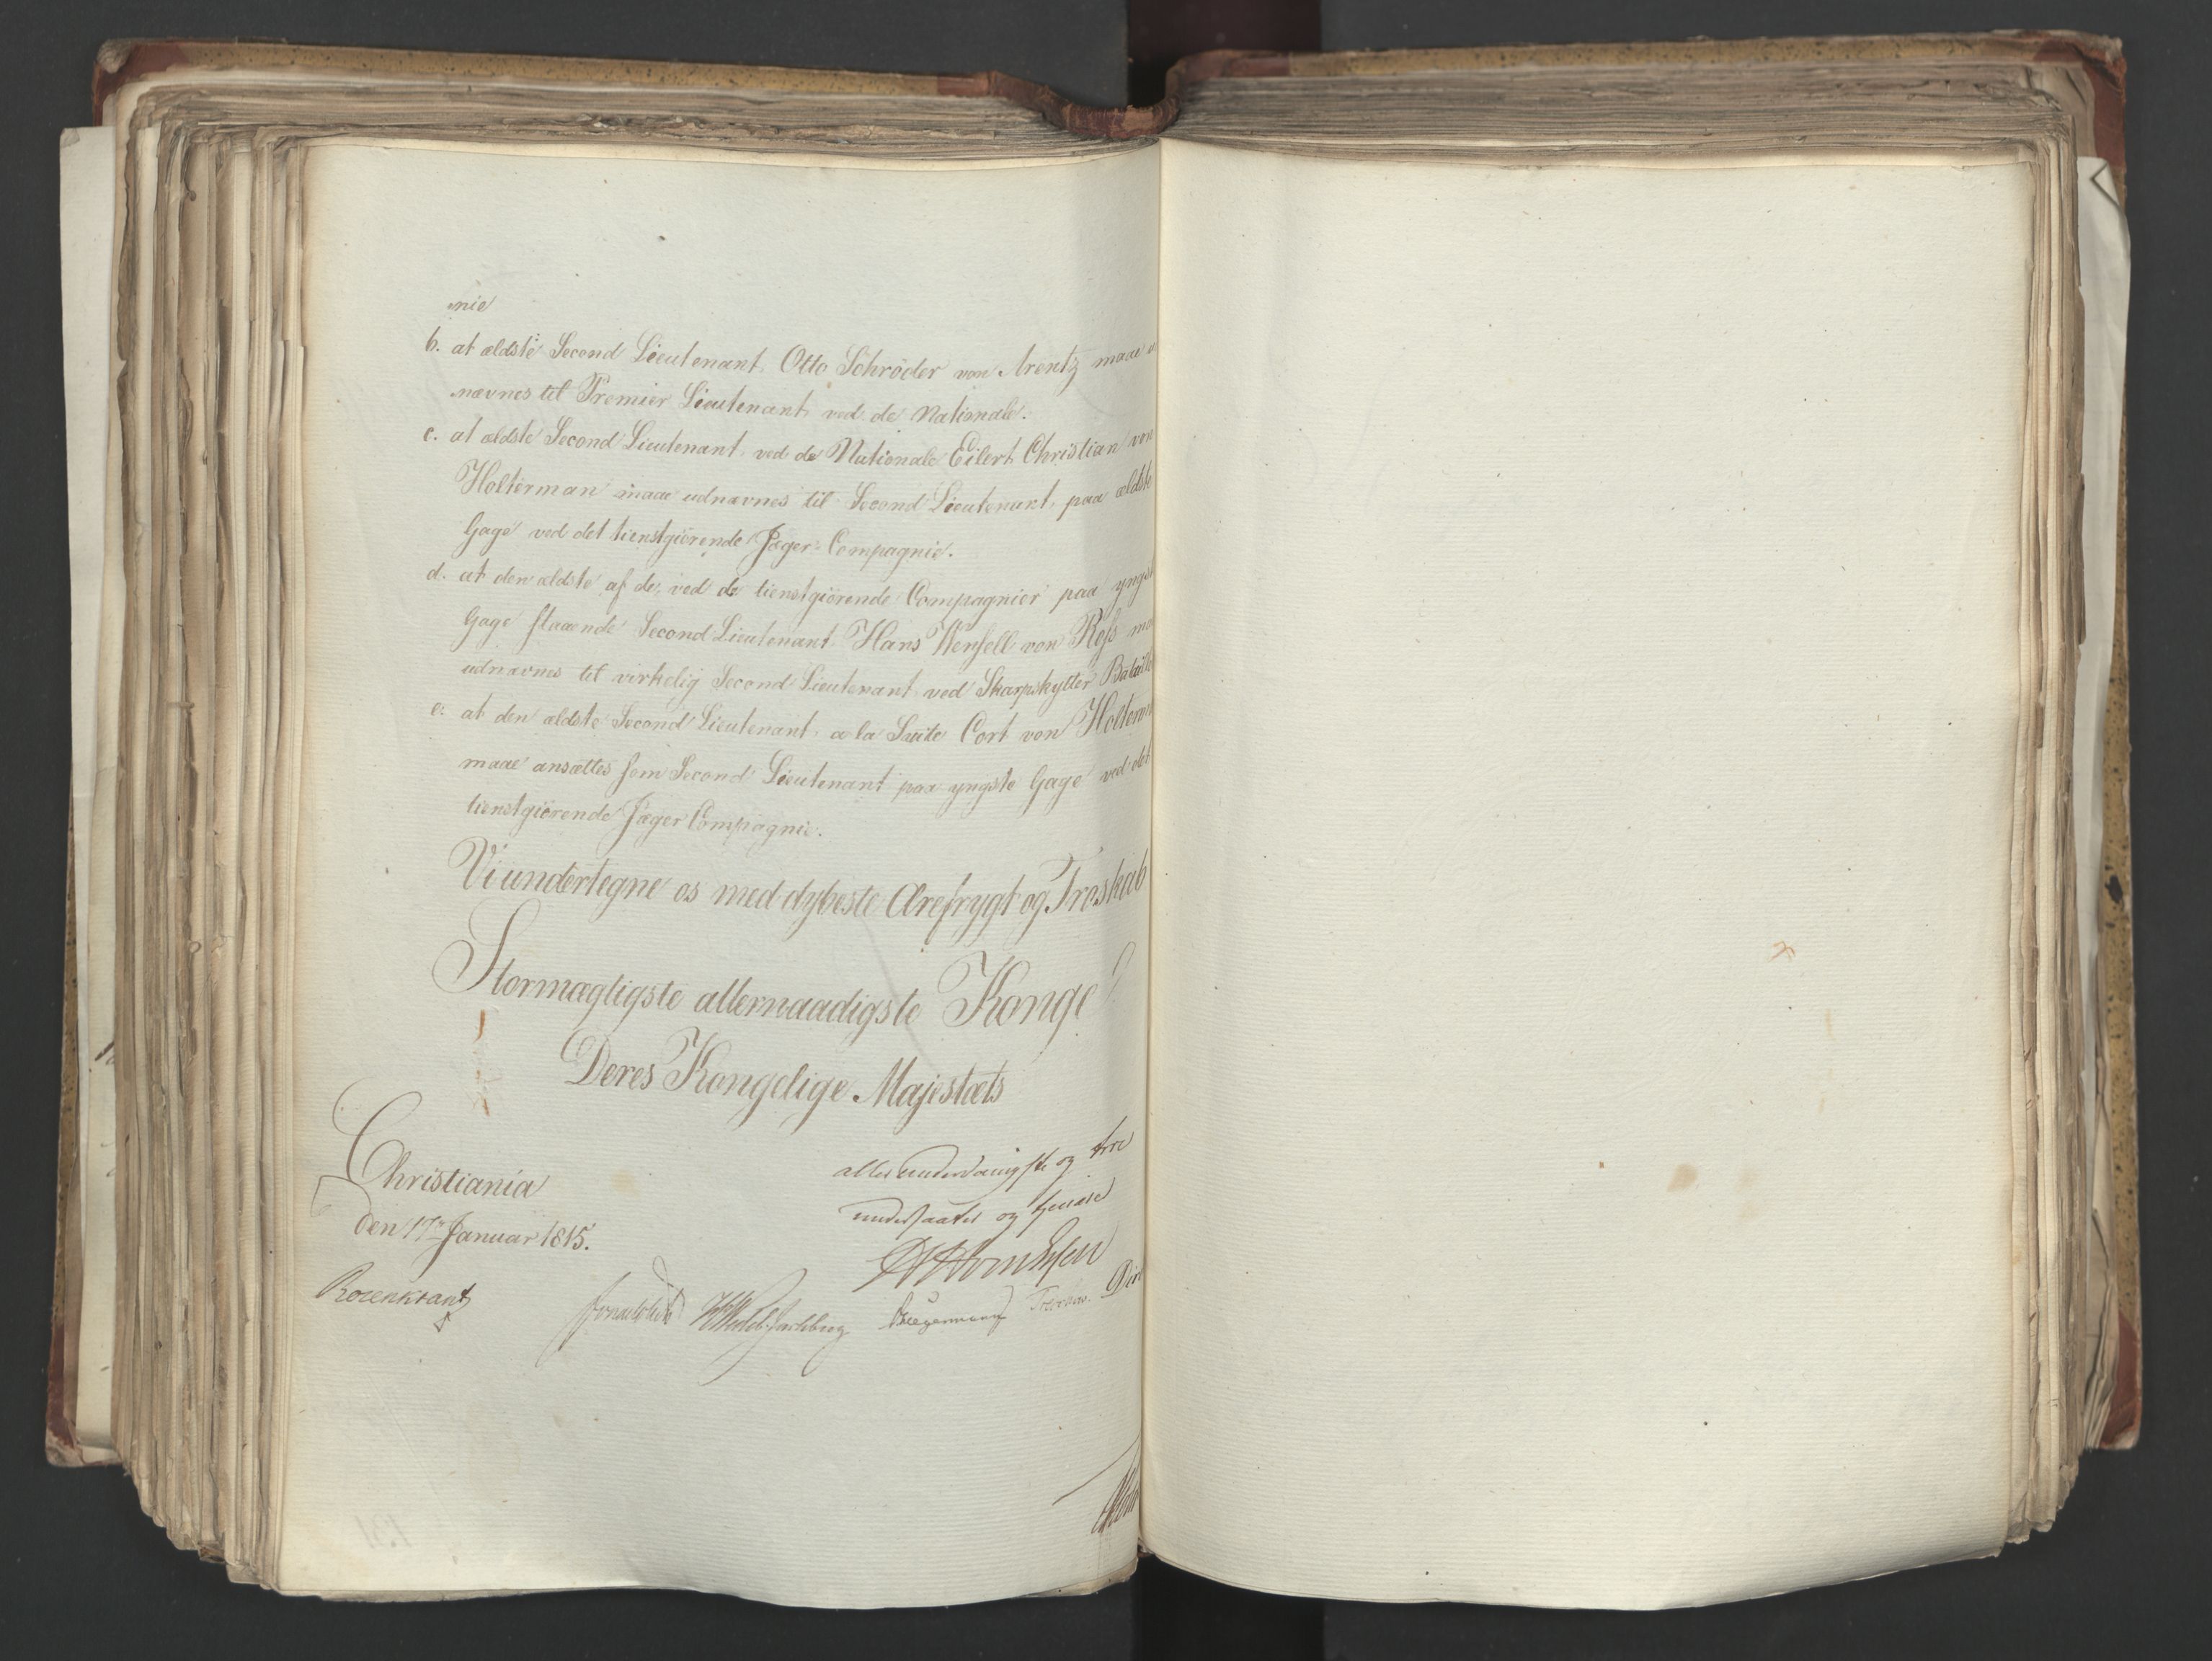 nie
b. at ældste Second Lieutenant Otto Schröder von Arentz maae u
nævnes til Premier Lieutenant ved de Nationale.
c. at ældste Second Lieutenant ved de Nationale Eilert Christian von
Holterman maae udnævnes til Second Lieutenant paa ældste
Gage ved det tienstgiörende Jæger-Compagnie.
d. at den ældste af de, ved de tienstgiörende Compagnier paa yngst
Gage staaende Second Lieutenant Hans Wensell von Ross ma
udnævnes til virkelig Second Lieutenant ved Skarpskytter Bataill
e. at den ældste Second Lieutenant a la Suite Cort von Holterm
maae ansættes som Second Lieutenant paa yngste Gage ved det
tienstgiörende Jæger Compagnie.
Vi undertegne os med dybeste Ærefrygt og Troskab
Stormægtigste allernaadigste Konge!
Deres Kongelige Majestæts
Christiania
den 17de Januar 1815.
allerunderdanigste og troe
undersaatter og tjenere
Rosenkrantz
Treschow